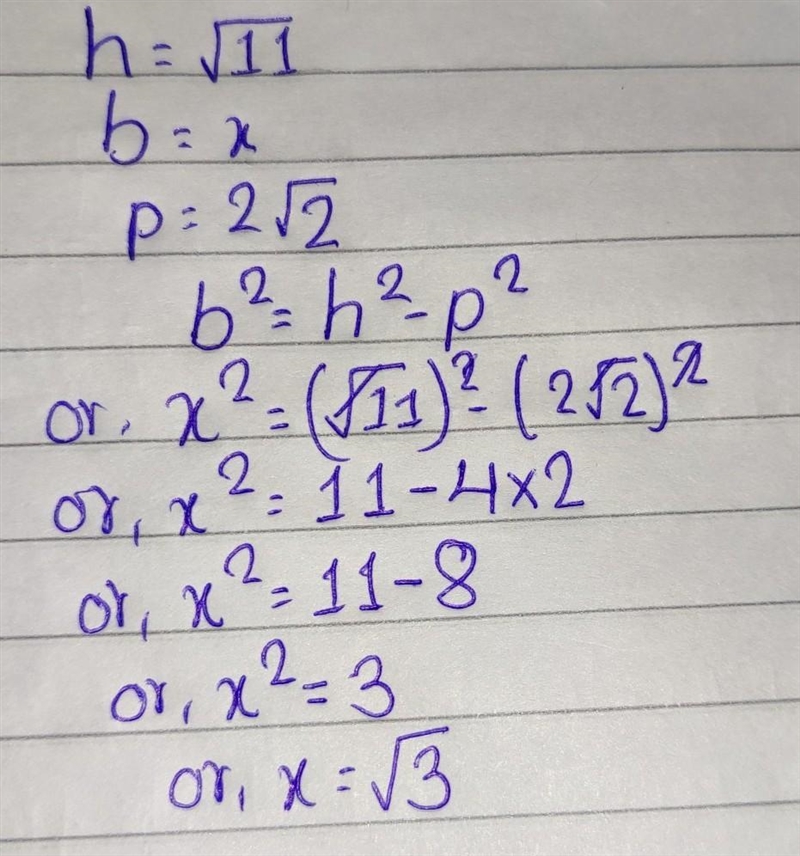 h = √11
b = x
p = 2√2
b² = h² - p²
or, x² = (√11)² - (2√2)²
or, x² = 11 - 4×2
or, x² = 11 - 8
or, x² = 3
or, x = √3